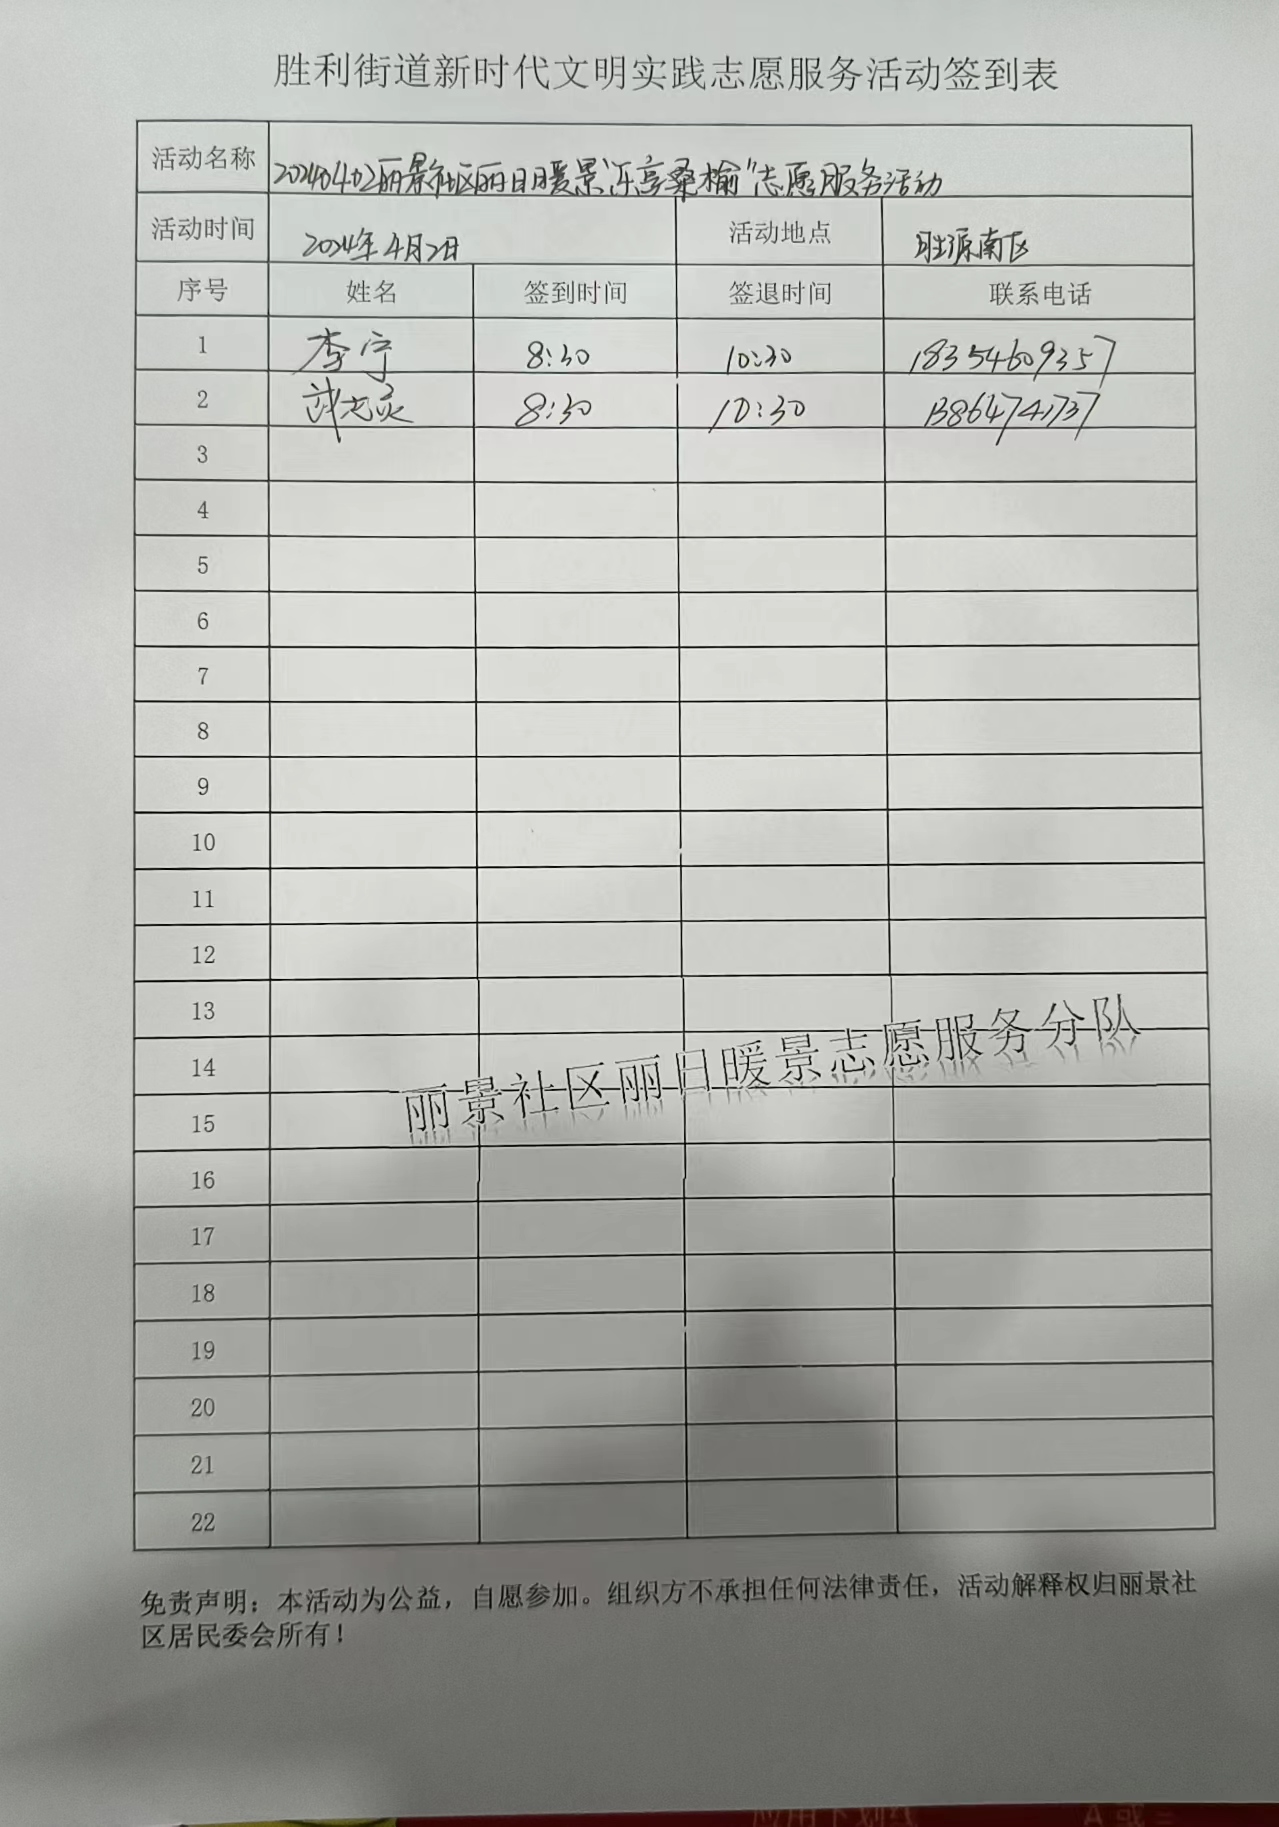 胜利街道新时代文明实践志愿服务活动签到表
活动名称 20240402丽景社区丽日暖景“乐享桑榆”志愿服务活动
活动时间 2024年4月2日 活动地点 胜源南区
序号 姓名 签到时间 签退时间 联系电话
1 李宁 8:30 10:30 18354609357
2 8:30 10:30 13864741737
3
4
5
6
7
8
9
10
11
12
13
14
15
丽景社区丽日暖景志愿服务分队
16
17
18
19
20
21
22
免责声明：本活动为公益，自愿参加。组织方不承担任何法律责任，活动解释权归丽景社
区居民委会所有！